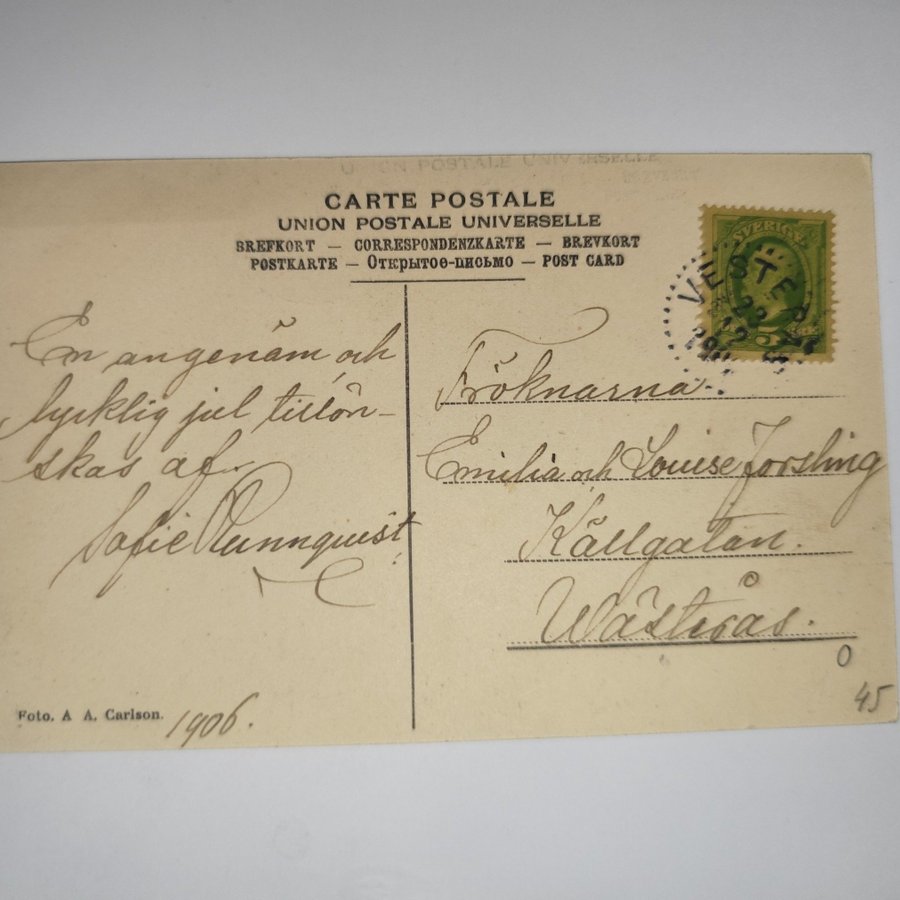 UNION POSTALE UNIVERSELLE
BREVKORT
CARTE POSTALE
UNION POSTALE UNIVERSELLE
BREFKORT — CORRESPONDENZKARTE — BREVKORT
POSTKARTE — Открытое-письмо — POST CARD
SVERIGE
VESTER
En angenäm och
lycklig jul tillön-
skas af.
Sofie Runnquist.
Fröknarna
Emilia och Louise Forsling
Källgatan.
Wästerås.
0
45
Foto. A A. Carlson.
1906.